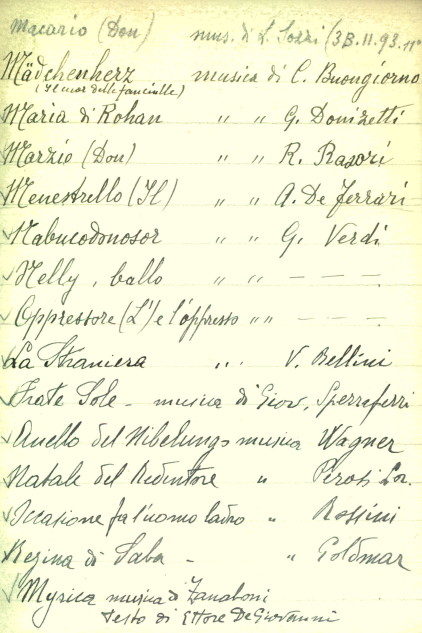 Macario (Don) mus. di L. Sozzi (3B.11.93.11°
Mädchenherz musica di C. Buongiorno
(Il cuor delle fanciulle)
Maria di Rohan " " G. Donizetti
Marzio (Don) " " R. Rasori
Menestrello (Il) " " A. De Ferrari
Nabucodonosor " " G. Verdi
Nelly, ballo " " — — —
Oppressore (L') e l'oppresso " " — — —
La Straniera " " V. Bellini
Frate Sole - musica di Giov. Sperraferri
Anello del Nibelungo musica Wagner
Natale del Redentore " Perosi Lor.
Occasione fa l'uomo ladro " Rossini
Regina di Saba - " Goldmar
Myrica musica di Zanaboni
Testo di Ettore De Giovanni